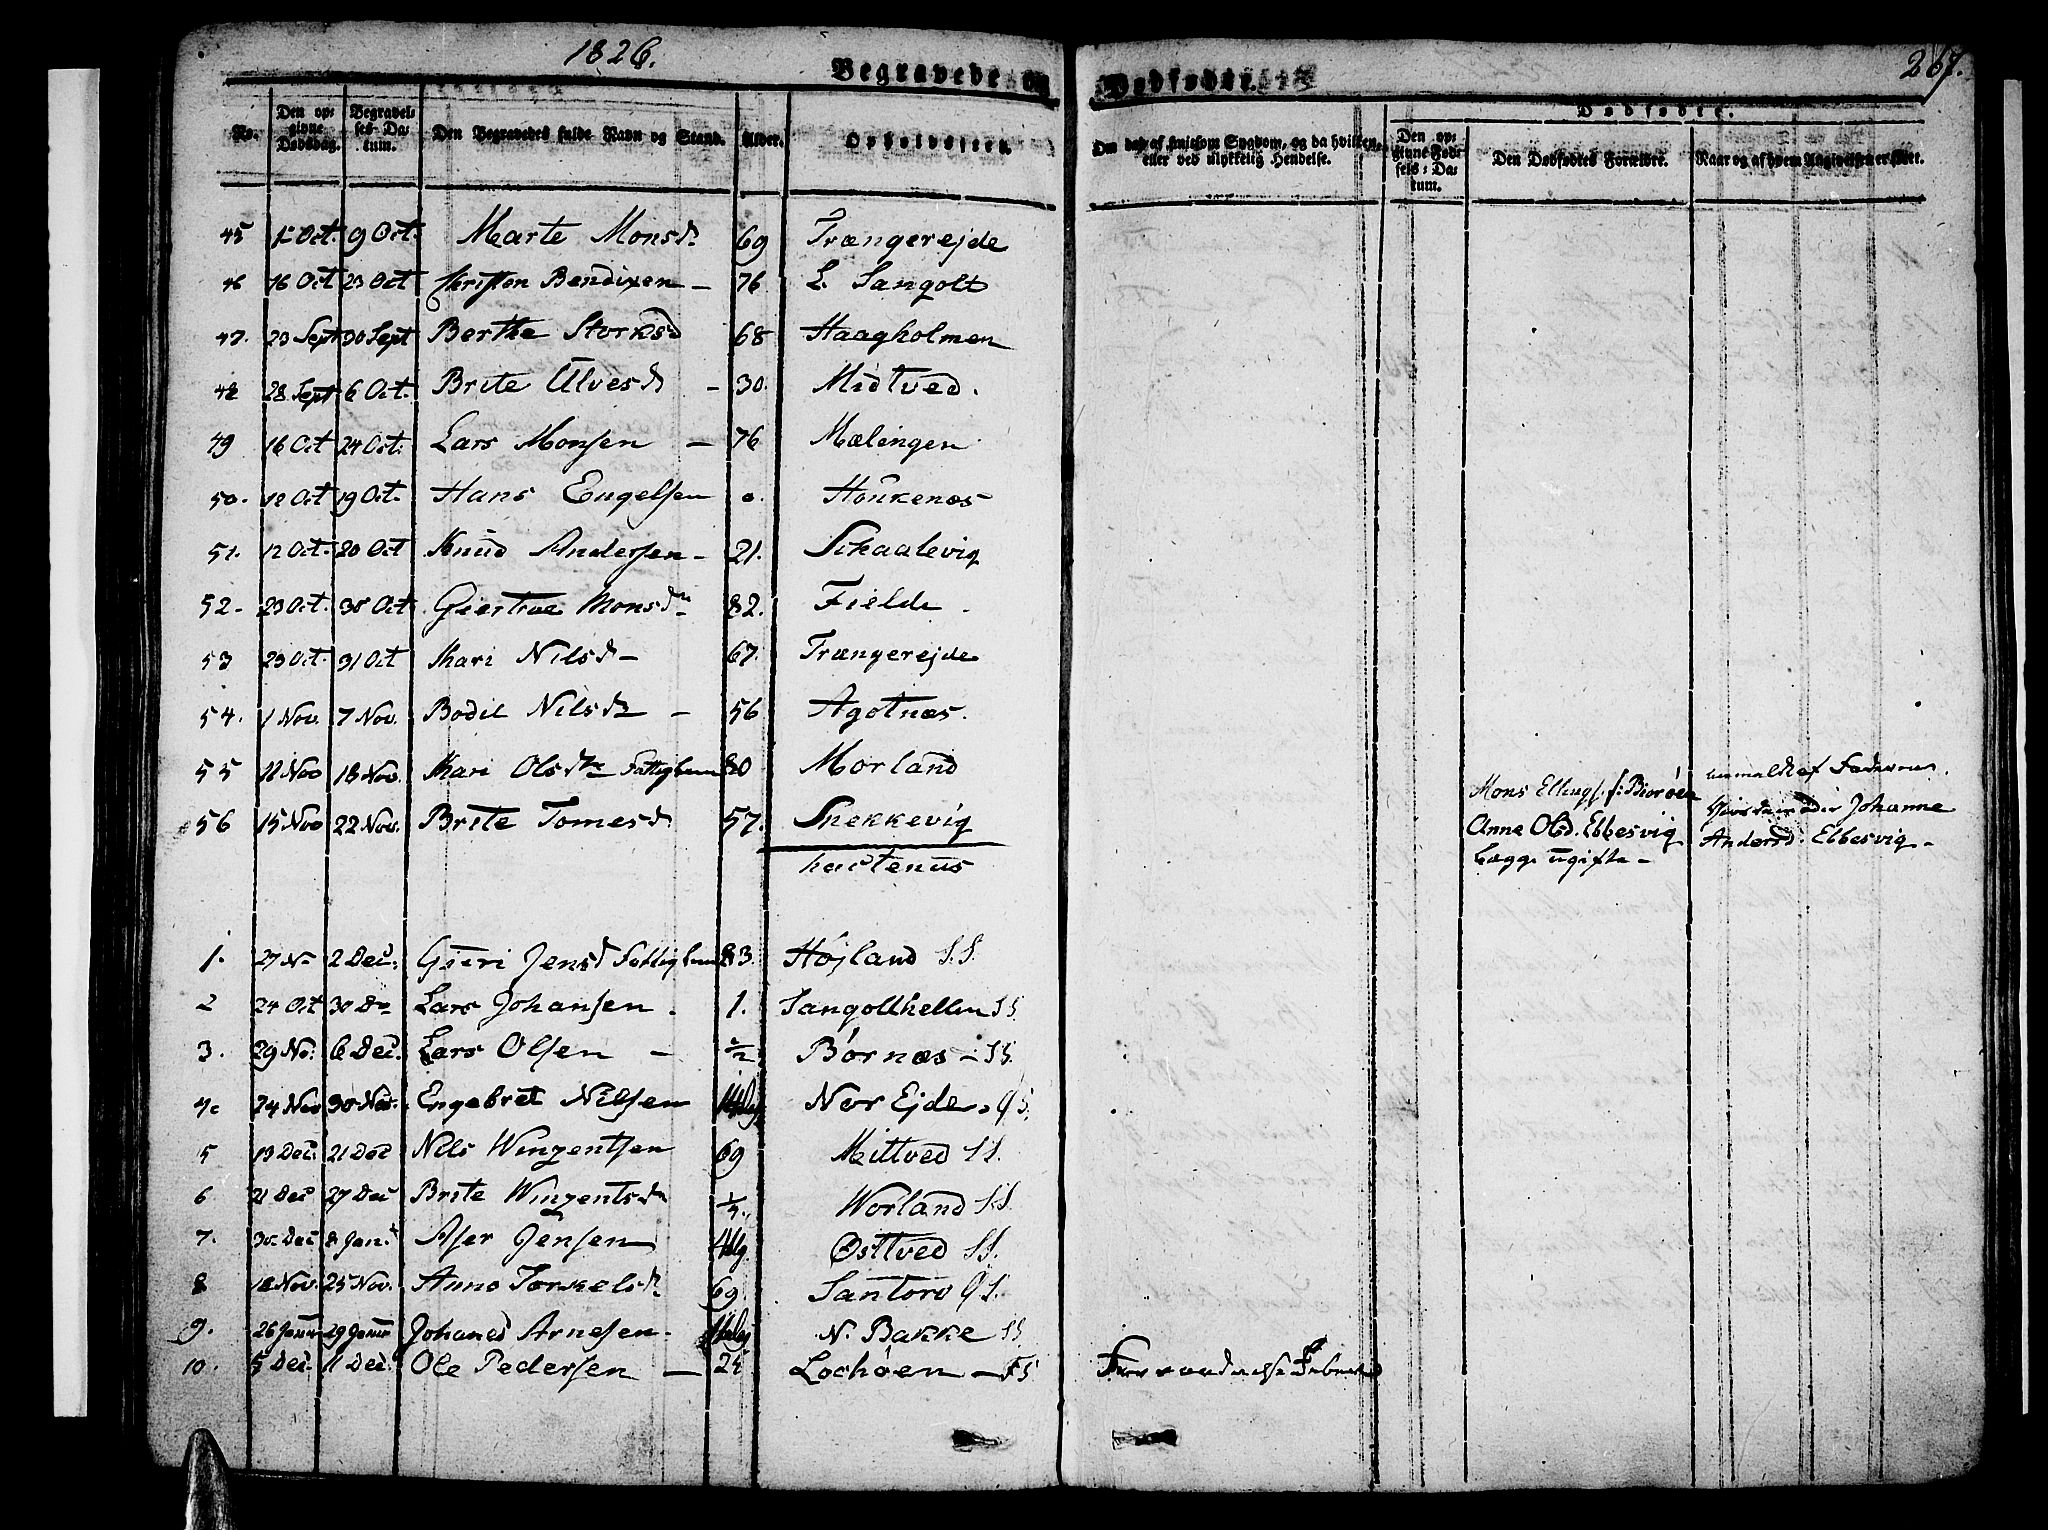 1826.
267.
Begravede og Dødfødte.
Dødfødte.
No. Den opgivne Dødsdag. Begravelses-Datum. Den Begravedes fulde Navn og Stand. Alder. Opholdssted. Om død af smitsom Sygdom, og da hvilken, eller ved ulykkelig Hendelse. Den opgivne Fødsels-Datum. Den Dødfødtes Forældre. Naar og af hvem Angivelsen er skeet.
45 1 Oct. 9 Oct. Marte Monsd 69 Trængerejde
46 16 Oct 23 Oct Kristen Bendixen - 76 L. Sangolt
47. 23 Sept 30 Sept Berthe Storksd 68 Haagholmen
48 28 Sept 6 Oct. Brite Ulvesd - 30. Midtved.
49 16 Oct 24 Oct. Lars Monsen - 76 Mælingen
50. 12 Oct 19 Oct. Hans Engelsen 0. Houkenæs
51. 12 Oct. 20 Oct Knud Andersen - 21. Schaalevig
52. 23 Oct. 30 Oct Giertrue Monsdr 82. Fielde
53 23 Oct. 31 Oct Kari Nilsd - 67. Trængerejde
54. 1 Nov. 7 Nov. Bodil Nilsd - 56 Agotnæs.
55 11 Nov 18 Nov. Kari Olsdtr Fattiglem 80 Morland
56 15 Nov 22 Nov. Brite Tomesd 57. Snekkevig
hactenus
Mons Ellings. f: Biorøen
Anne Olsd. Ebbesvig
begge ugifte -
anmeldt af Faderen
Johanne
Andersd. Ebbesvig -
1. 27 N 2 Dec. Guri Jensd Fattiglem 83. Højland S.S.
2 24 Oct 30 Lars Johansen. 1. Sangolthellen SS.
3. 29 No. 6 Dec. Lars Olsen - ½ Børnæs - SS.
4. 24 Nov 30 Nov. Engebret Nilsen Nor Ejde.
5 13 Dec. 21 Dec Nils Winzentsen 69 Mittved SS.
6 21 Dec 27 Dec Brite Winzentsd ¼. Worland SS.
7. 30 Dec 8 Jan. Aser Jensen Østtved SS.
8 18 Nov. 25 Nov. Anne Torkelsd 69. Santorv
9. 26 Janur 29 Janur Johanes Arnesen. N. Bakke SS
10. 5 Dec. 11 Dec. Ole Pedersen - 24 Lochøen - FS